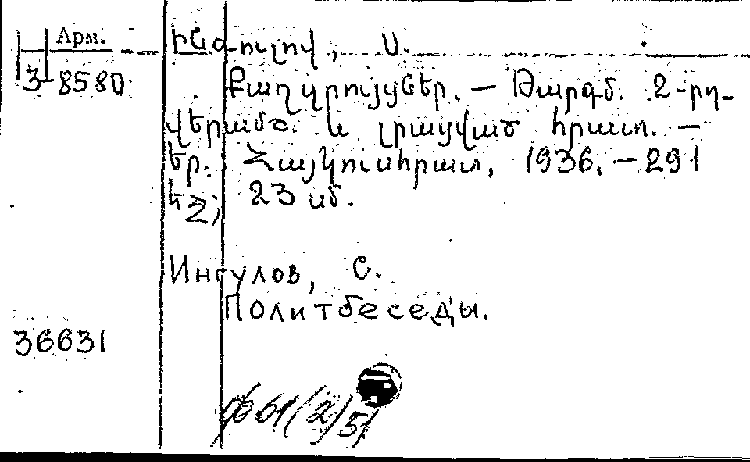 Арм.
3-8580
Ինգուլով, Ս.
Քաղզրույցներ. — Թարգմ. 2-րդ
վերամշ. և լրացված հրատ. —
Եր. Հայկուսհրատ, 1936. — 291
եջ; 23 սմ.
Ингулов, С.
Политбеседы.
36631